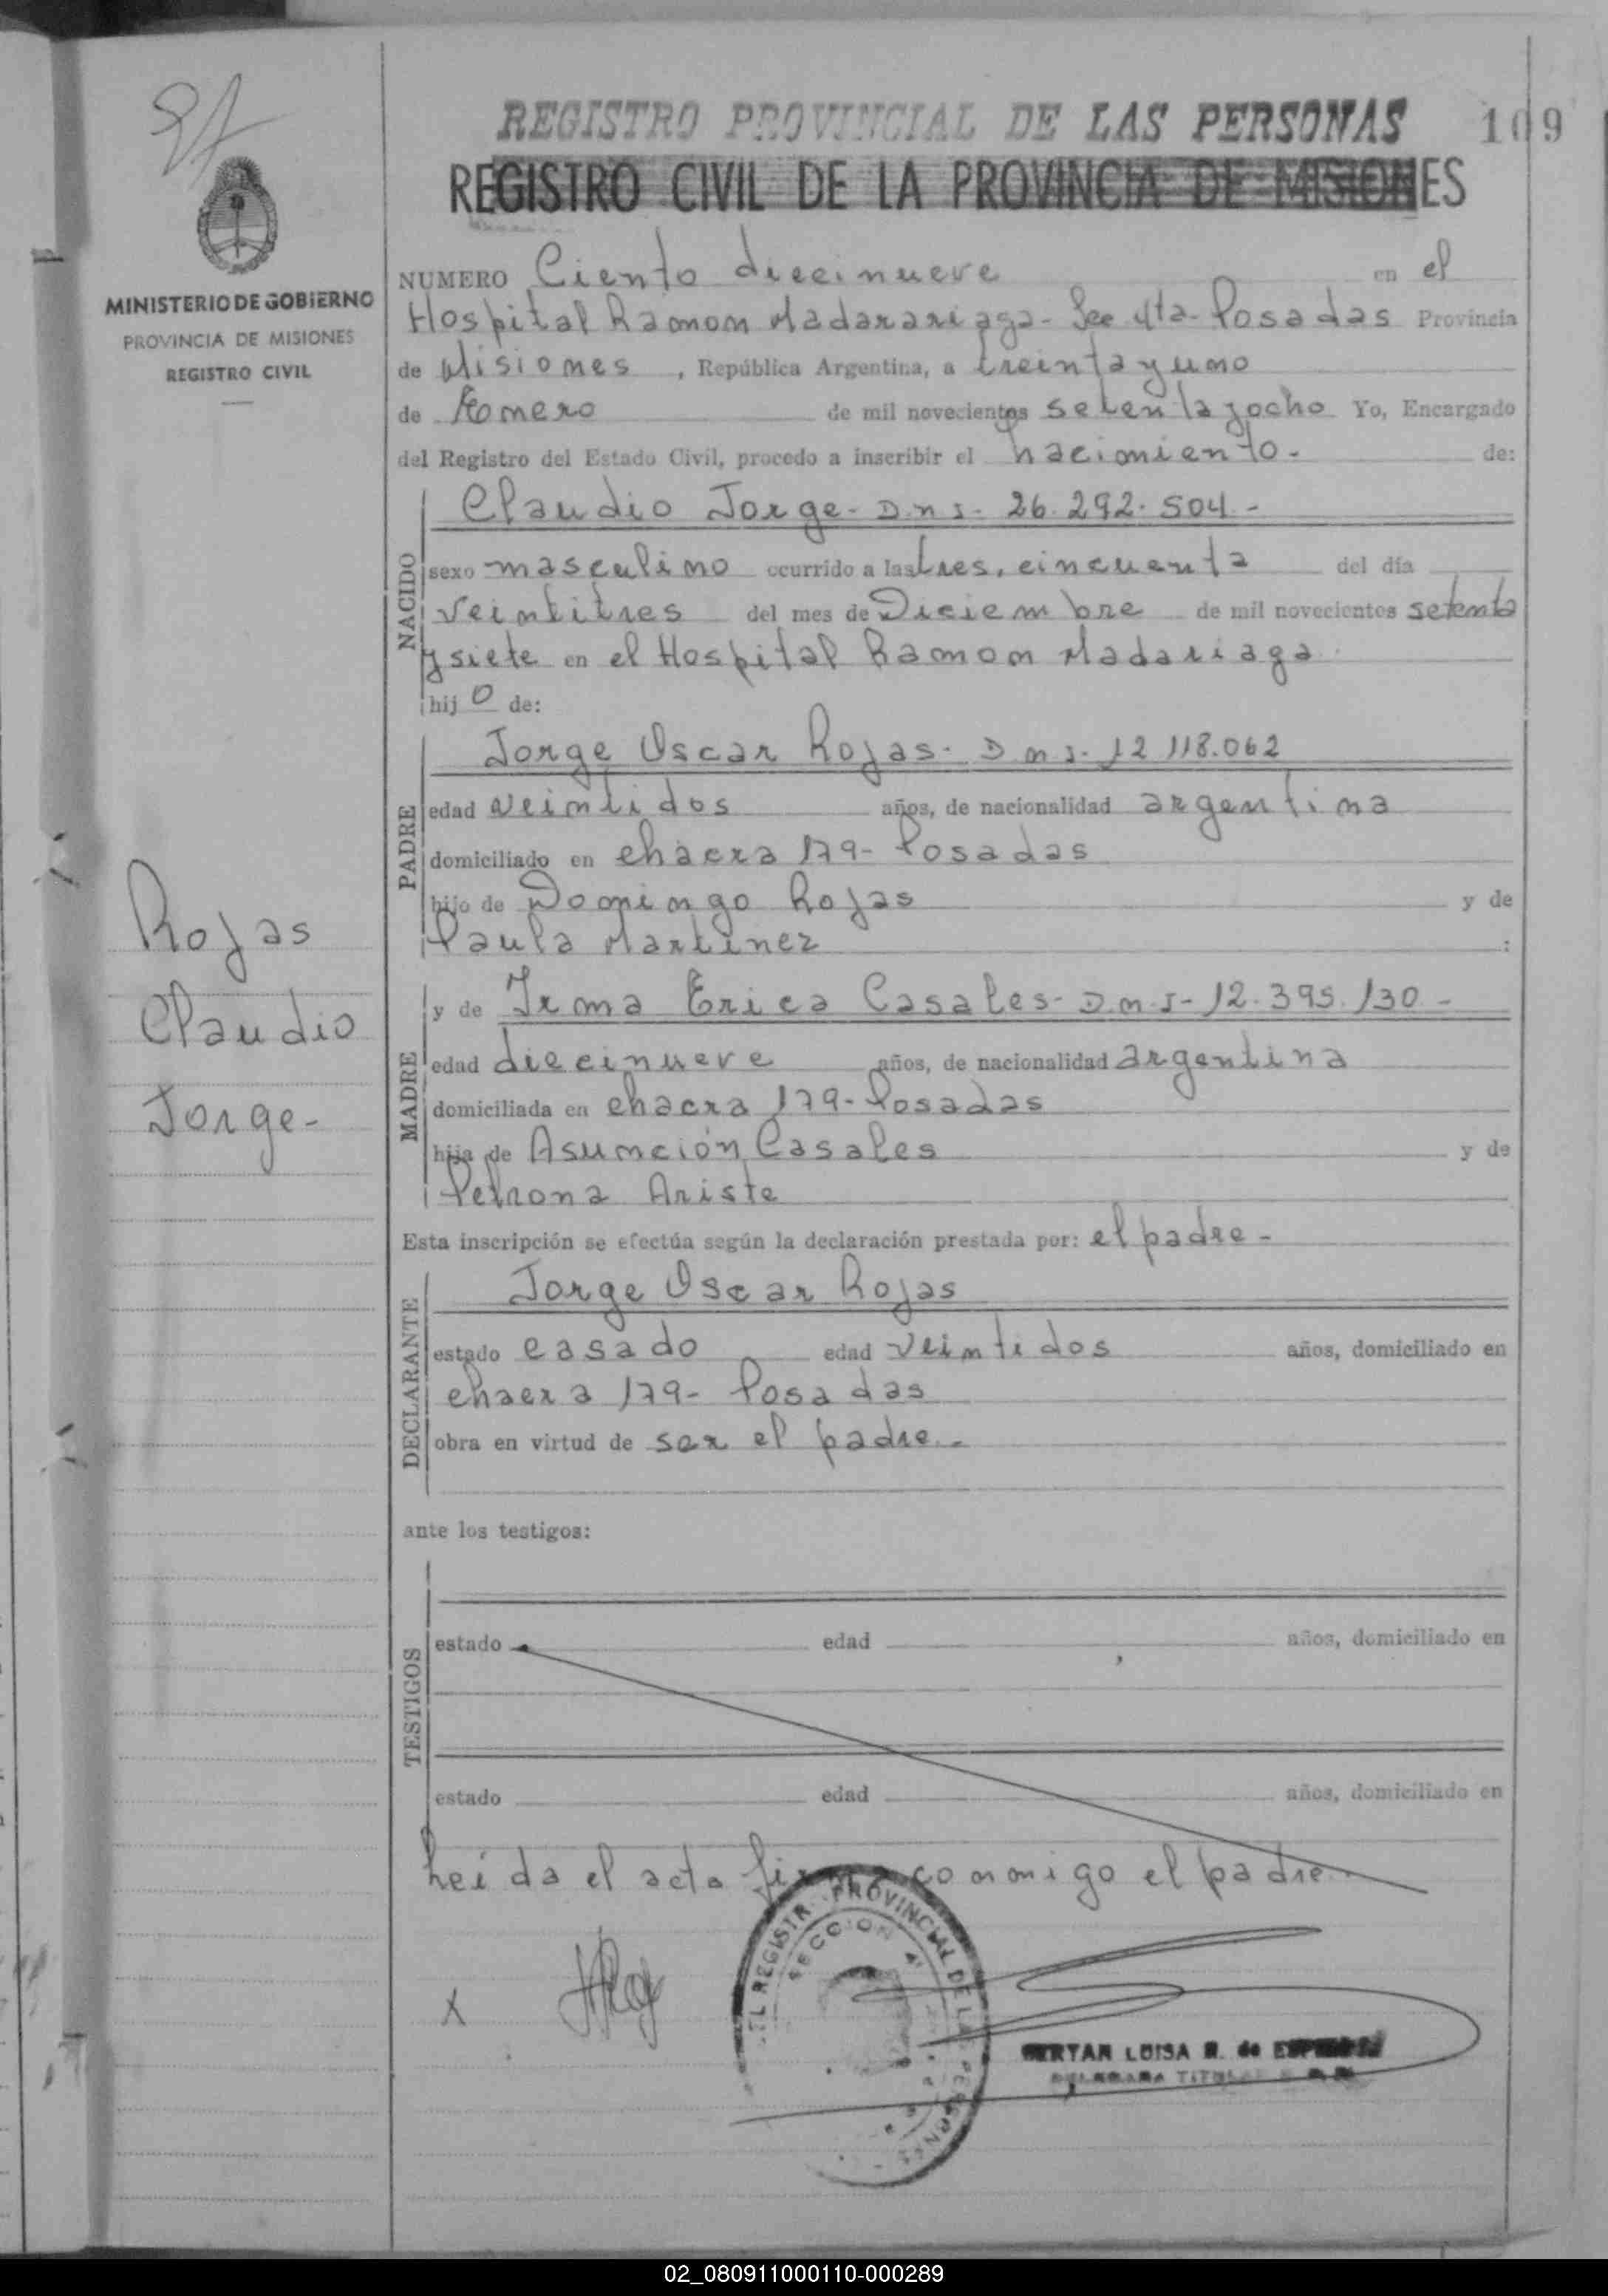 REGISTRO PROVINCIAL DE LAS PERSONAS
109
REGISTRO CIVIL DE LA PROVINCIA DE MISIONES
MINISTERIO DE GOBIERNO
PROVINCIA DE MISIONES
REGISTRO CIVIL
NUMERO Ciento diecinueve en el
Hospital Ramon Madarariaga - Sec 4ta - Posadas Provincia
de Misiones, República Argentina, a treinta y uno
de Enero de mil novecientos setenta y ocho Yo, Encargado
del Registro del Estado Civil, procedo a inscribir el nacimiento - de:
NACIDO
Claudio Jorge - D.N.I - 26.292.504 -
sexo masculino ocurrido a las tres, cincuenta del día
veintitres del mes de Diciembre de mil novecientos setenta
y siete en el Hospital Ramon Madariaga
hijo de:
PADRE
Jorge Oscar Rojas - D.N.I - 12 118.062
edad veintidos años, de nacionalidad argentina
domiciliado en chacra 179 - Posadas
hijo de Domingo Rojas y de
Paula Martinez :
Rojas
Claudio
Jorge -
MADRE
y de Irma Erica Casales - D.N.I - 12.395.130 -
edad diecinueve años, de nacionalidad argentina
domiciliada en chacra 179 - Posadas
hija de Asunción Casales y de
Petrona Ariste
Esta inscripción se efectúa según la declaración prestada por: el padre -
DECLARANTE
Jorge Oscar Rojas
estado casado edad veintidos años, domiciliado en
chacra 179 - Posadas
obra en virtud de ser el padre. -
ante los testigos:
TESTIGOS
estado edad años, domiciliado en
estado edad años, domiciliado en
Leída el acta firma conmigo el padre
X
REGISTR PROVINCIAL DE LAS PERSONAS
SECCION 4
LUISA R. de
TITULAR
02_080911000110-000289